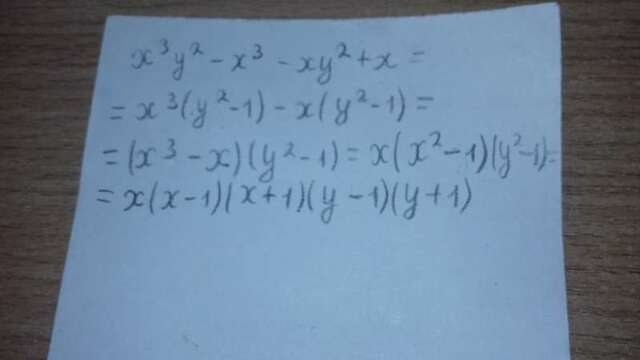 x³y² - x³ - xy² + x =
= x³(y² - 1) - x(y² - 1) =
= (x³ - x)(y² - 1) = x(x² - 1)(y² - 1) =
= x(x - 1)(x + 1)(y - 1)(y + 1)